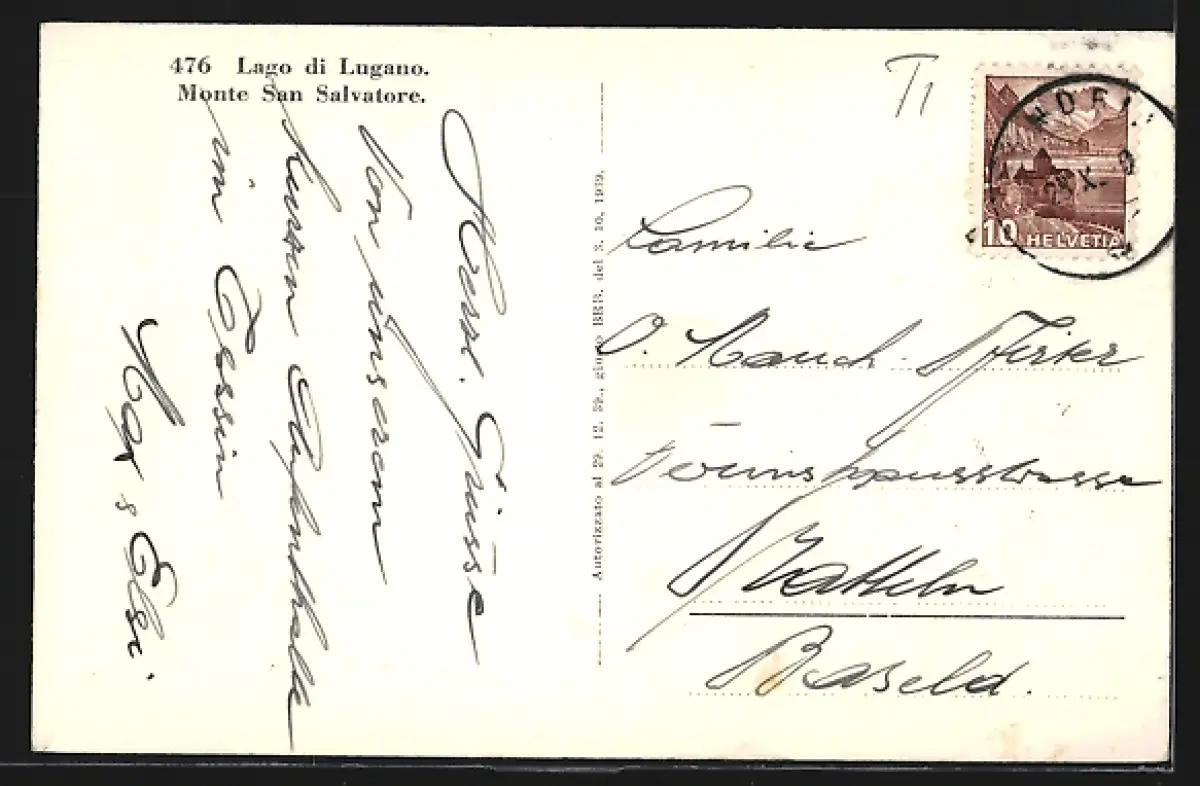 476 Lago di Lugano.
Monte San Salvatore.
Herzl. Grüsse
von unserem
kurzen Aufenthalt
im Tessin
Max & Elsi.
Autorizzato al 29. 12. 39., giusto BRB. del 3. 10. 1939.
T1
10 HELVETIA
Familie
O. Mauch-Pfirter
Vereinshausstrasse
Pratteln
Baseld.